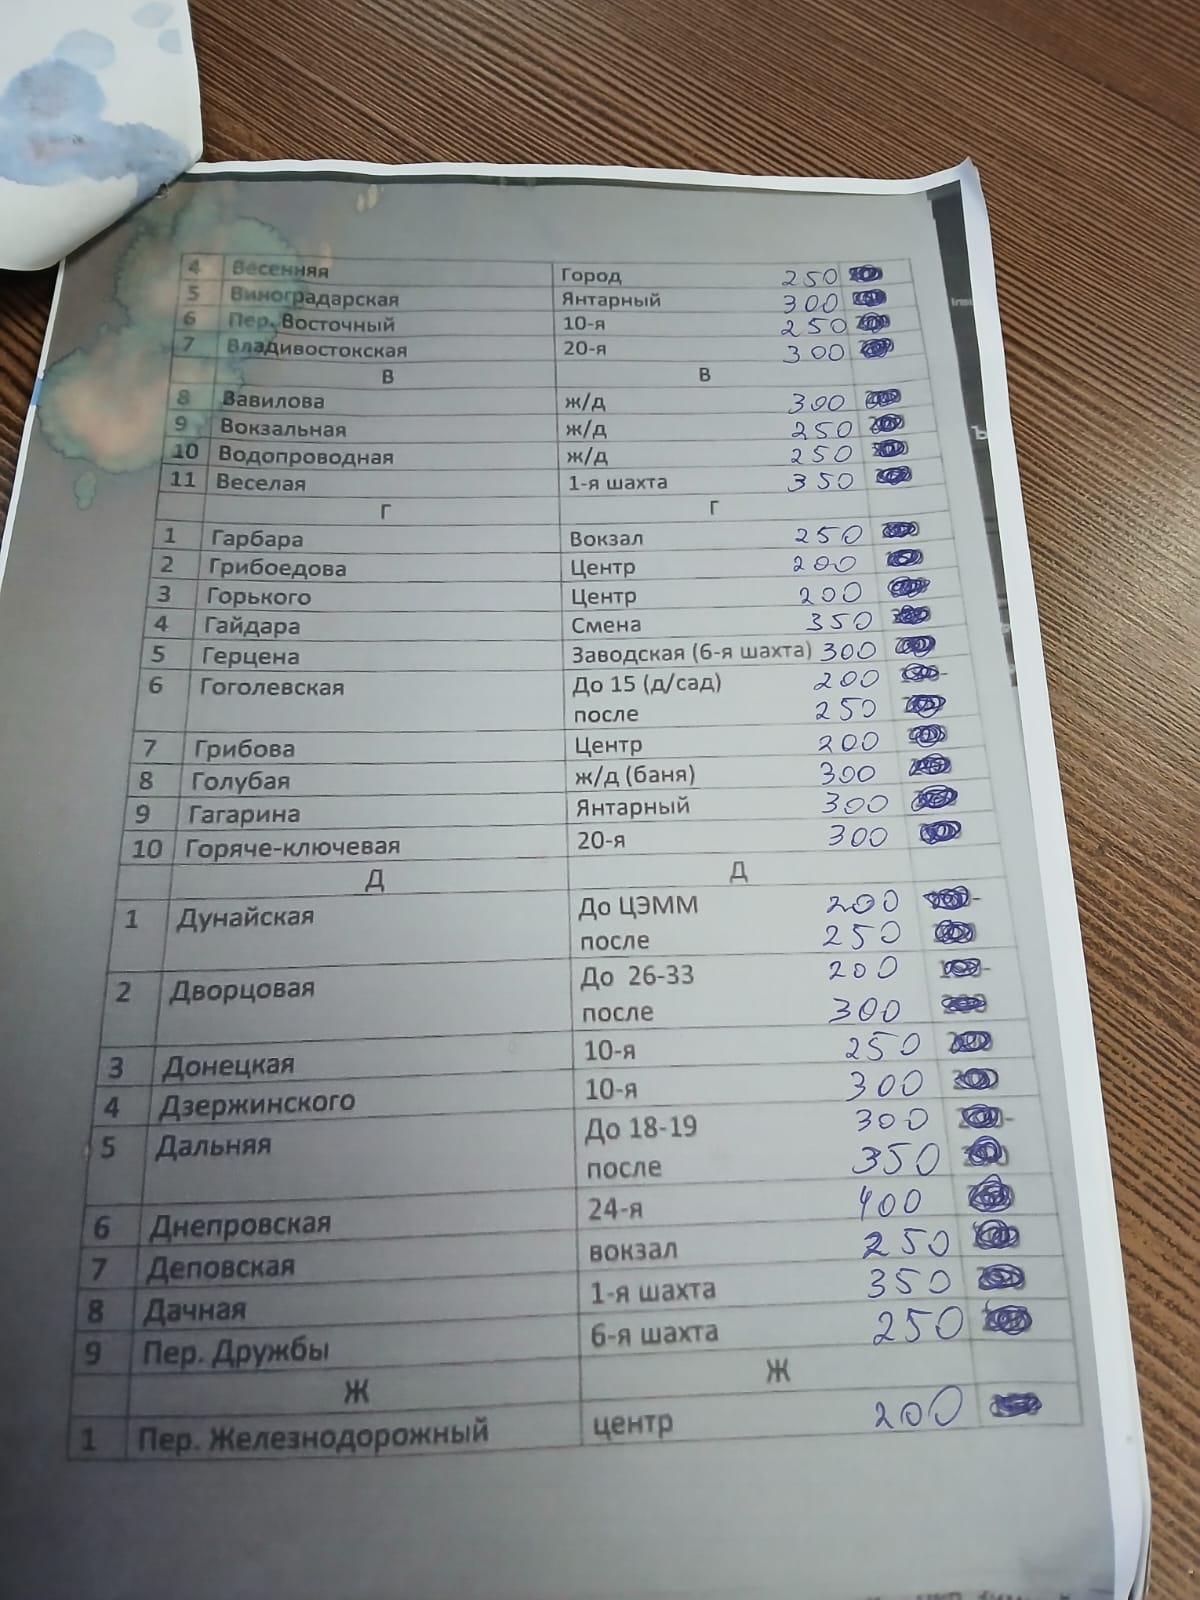 4 Весенняя Город 250
5 Виноградарская Янтарный 300
6 Пер. Восточный 10-я 250
7 Владивостокская 20-я 300
В В
8 Вавилова ж/д 300
9 Вокзальная ж/д 250
10 Водопроводная ж/д 250
11 Веселая 1-я шахта 350
Г Г
1 Гарбара Вокзал 250
2 Грибоедова Центр 200
3 Горького Центр 200
4 Гайдара Смена 350
5 Герцена Заводская (6-я шахта) 300
6 Гоголевская До 15 (д/сад) 200
после 250
7 Грибова Центр 200
8 Голубая ж/д (баня) 300
9 Гагарина Янтарный 300
10 Горяче-ключевая 20-я 300
Д Д
1 Дунайская До ЦЭММ 200
после 250
2 Дворцовая До 26-33 200
после 300
3 Донецкая 10-я 250
4 Дзержинского 10-я 300
5 Дальняя До 18-19 300
после 350
6 Днепровская 24-я 400
7 Деповская вокзал 250
8 Дачная 1-я шахта 350
9 Пер. Дружбы 6-я шахта 250
Ж Ж
1 Пер. Железнодорожный центр 200